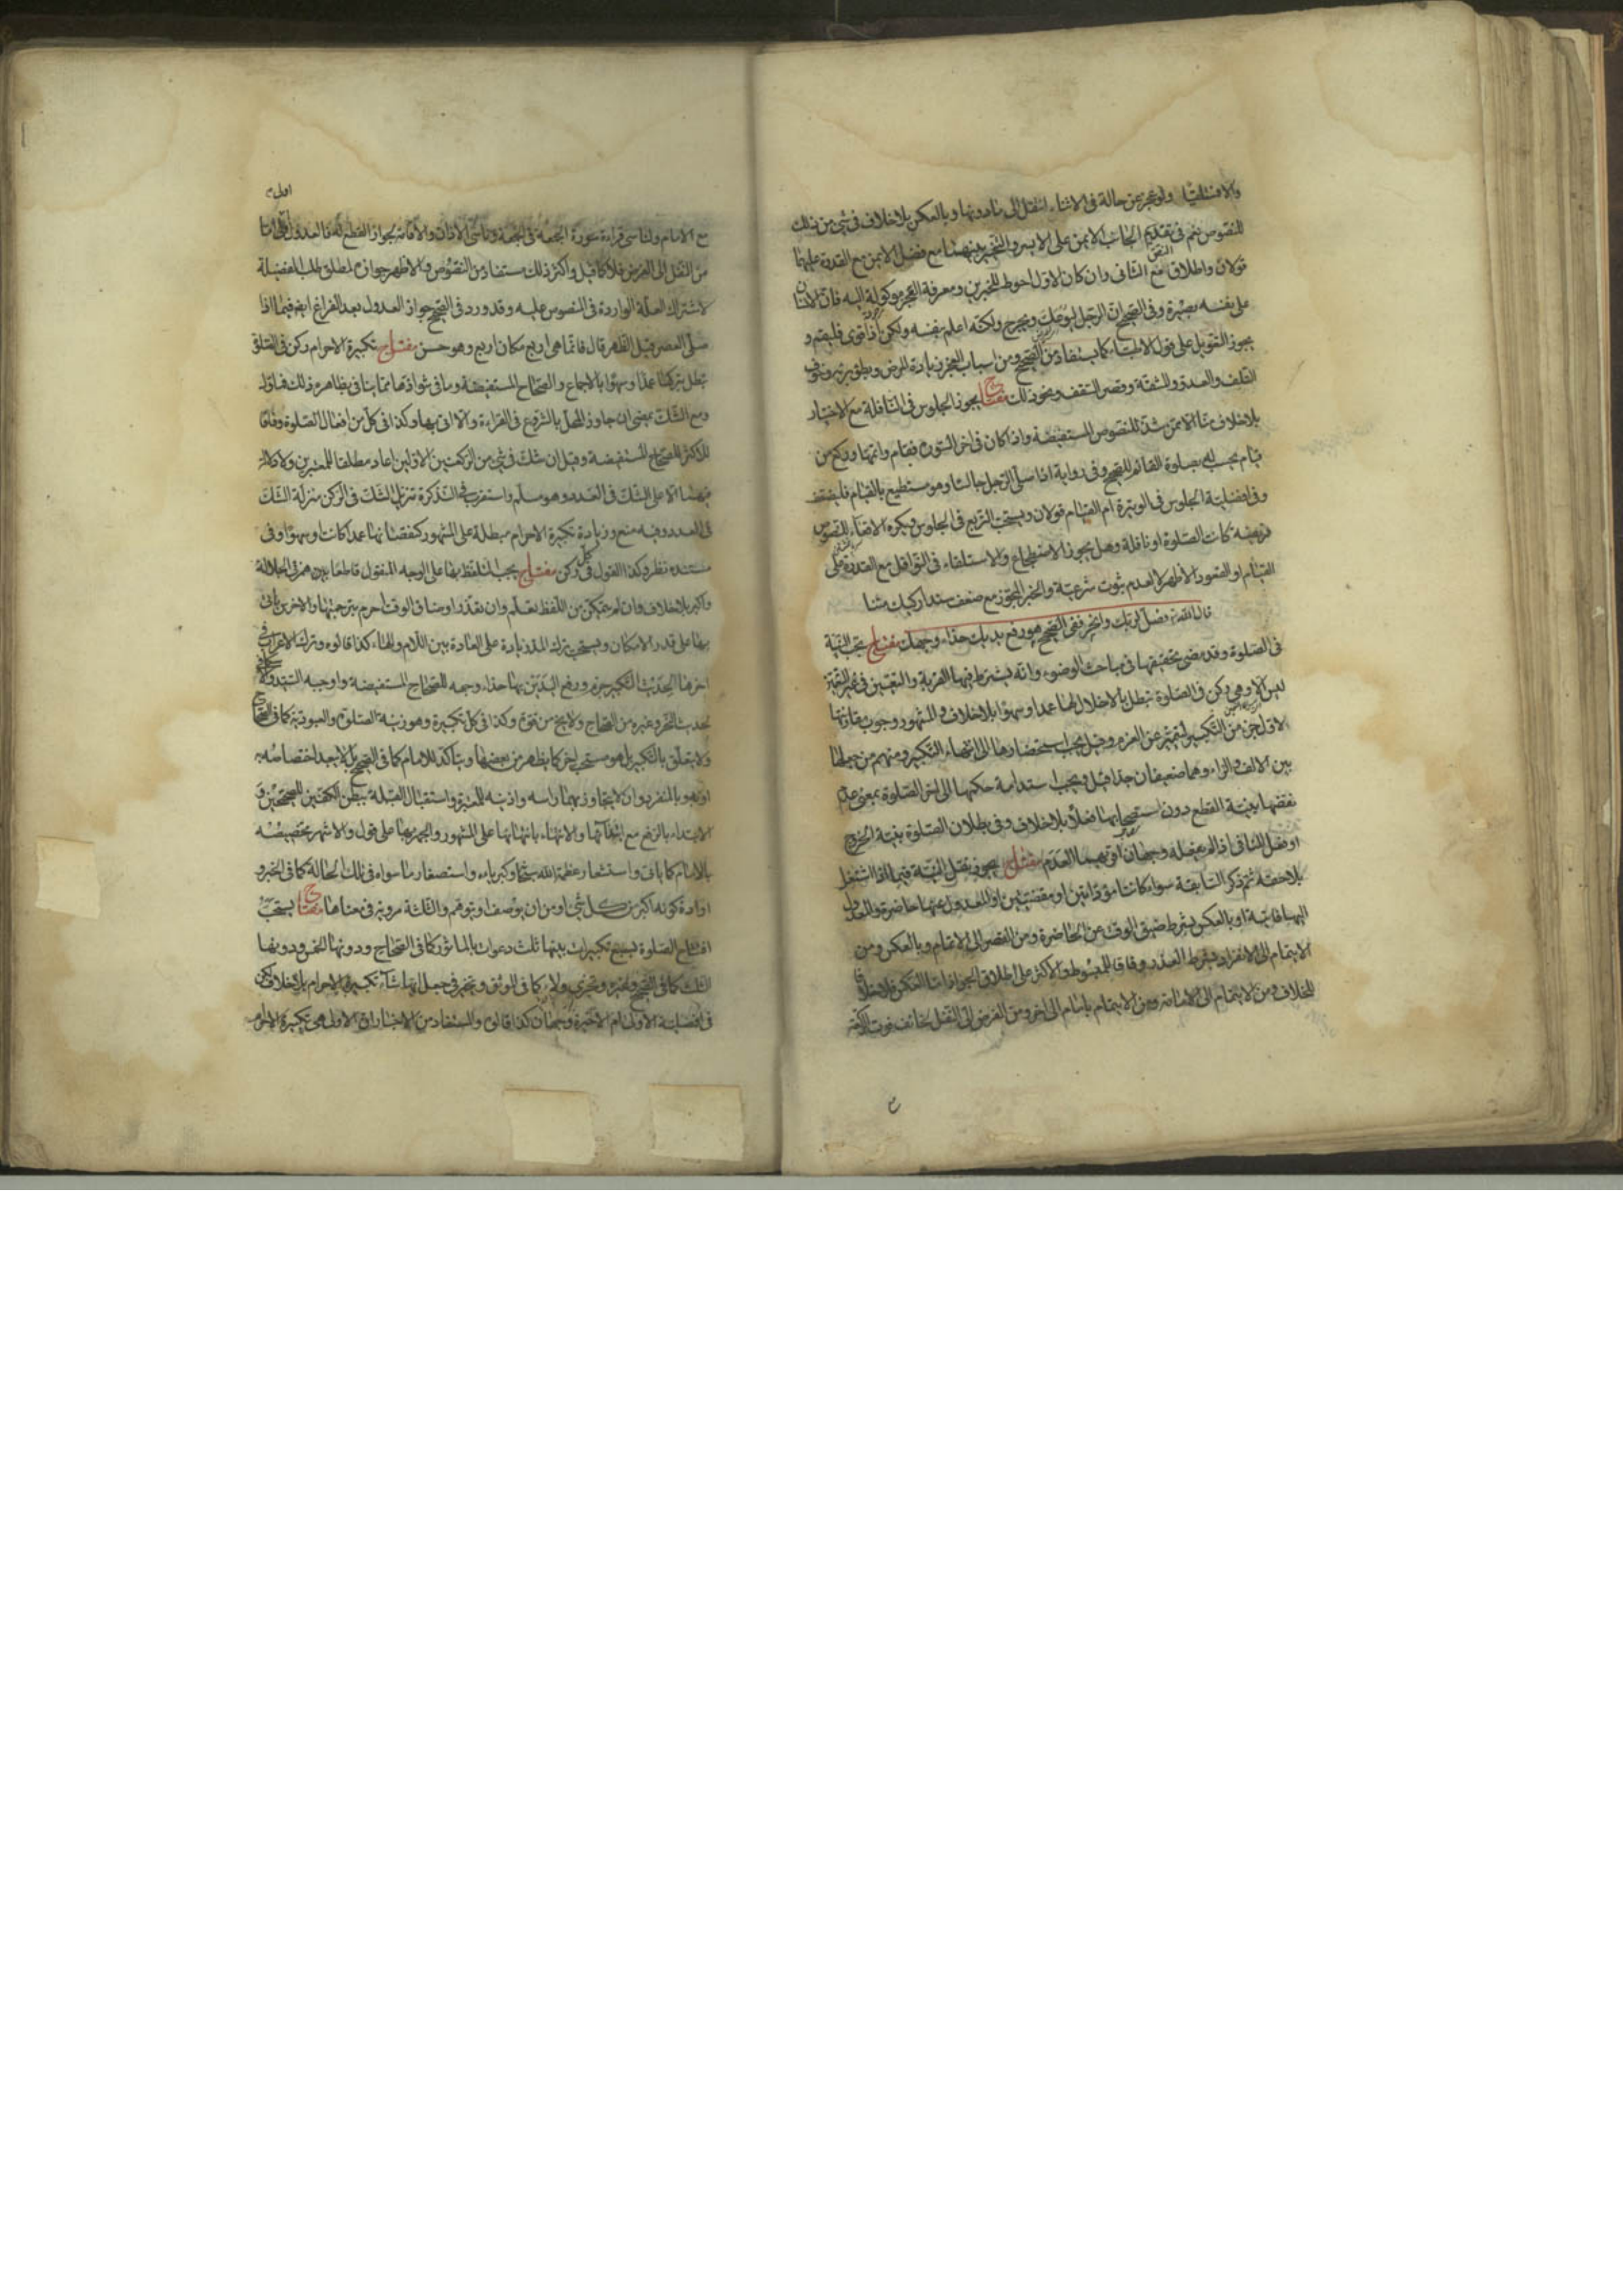 والا فمستلقيا ولو عجز عن حالة فى الاثناء انتقل الى ما دونها وبالعكس بلا خلاف فى شئ من ذلك
للنصوص نعم فى تقديم الجانب الايمن على الايسر والتخيير بينهما مع فضل الايمن مع القدرة عليهما
قولان واطلاق النص مع الثانى وان كان الاول احوط للخبرين ومعرفة العجز موكولة اليه فان الانسان
على نفسه بصيرة وفى الصحيح ان الرجل ليوعك ويحرج ولكنه اعلم بنفسه ولكن اذا قوى فليقم و
يجوز التعويل على قول الاطباء كما يستفاد من الصحيح ومن اسباب العجز زيادة المرض وبطؤ برئه وخوف
التلف والعدو والمشقة وقصر السقف ونحو ذلك مفتاح يجوز الجلوس فى النافلة مع الاختيار
بلا خلاف منا الا ممن شذ للنصوص المستفيضة واذا كان فى اخر السورة فقام واتمها وركع من
قيام يحسب له بصلوة القائم للصحيح وفى رواية اذا صلى الرجل جالسا وهو مستطيع بالقيام فليضعف
وفى افضلية الجلوس فى الوتيرة ام القيام قولان ويستحب التربع فى الجلوس ويكره الاقعاء للنصوص
فريضة كانت الصلوة او نافلة وهل يجوز الاضطجاع والاستلقاء فى النوافل مع القدرة على
القيام او القعود الاظهر لا لعدم ثبوت شرعيته والخبر المجوز مع ضعف سنده
قال الله تع فصل لربك وانحر ففى الصحيح هو رفع يديك حذاء وجهك مفتاح تجب النية
فى الصلوة وقد مضى تحقيقها فى مباحث الوضوء وانه يشترط فيها القربة والتعيين فى غير المتعين
ليس الا وهى ركن فى الصلوة تبطل بالاخلال بها عمدا وسهوا بلا خلاف والمشهور وجوب مقارنتها
لاول جزء من التكبير لتتميز عن العزم وقيل يجب استحضارها الى انتهاء التكبير ومنهم من جعلها
بين الالف والراء وهما ضعيفان جدا قيل ويجب استدامة حكمها الى اخر الصلوة بمعنى عدم
نقضها بنية القطع دون استصحابها فعلا بلا خلاف وفى بطلان الصلوة بنية الخروج
او فعل المنافى اذا لم يفعله وجهان اقويهما العدم مفتاح يجوز نقل النية فيما اذا اشتغل
بلاحقة ثم ذكر السابقة سواء كانتا مؤداتين او مقضيتين او المعدول عنها حاضرة والمعدول
اليها فائتة او بالعكس بشرط ضيق الوقت عن الحاضرة ومن القصر الى الاتمام وبالعكس ومن
الايتمام الى الانفراد بشرط العذر وفاقا للمبسوط والاكثر على اطلاق الجواز اما العكس فلا خلافا
للخلاف ومن الايتمام الى الامامة ومن الايتمام بامام الى اخر ومن الفرض الى النفل لخائف فوت الركعة
مع الامام ولناسى قراءة سورة الجمعة فى الجمعة وناسى الاذان والاقامة لجواز القطع له فالعدول اولى اما
من النفل الى الفرض فلا كما قيل واكثر ذلك مستفاد من النصوص والاظهر جوازه لمطلق طلب الفضيلة
لاشتراك العلة الواردة فى النصوص عليه وقد ورد فى الصحيح جواز العدول بعد الفراغ ايضا فيما اذا
صلى العصر قبل الظهر قال فانما هى اربع مكان اربع وهو حسن مفتاح تكبيرة الاحرام ركن فى الصلوة
تبطل بتركها عمدا وسهوا بالاجماع والصحاح المستفيضة وما فى شواذها مما ينافى بظاهره ذلك فماول
ومع الشك يمضى ان جاوز المحل بالشروع فى القراءة والا اتى بها وكذا فى كل من افعال الصلوة وفاقا
للاكثر للصحاح المستفيضة وقيل ان شك فى شئ من الركعتين الاوليين اعاد مطلقا للمعتبرين ولا دلالة
فيهما الا على الشك فى العدد وهو مسلم واستقرب فى التذكرة تنزيل الشك فى الركن منزلة الشك
فى العدد وفيه منع وزيادة تكبيرة الاحرام مبطلة على المشهور كنقصانها عمدا كانت او سهوا وفى
مستنده نظر وكذا القول فى كل ركن مفتاح يجب التلفظ بها على الوجه المنقول قاطعا بين همزتى الجلالة
واكبر بلا خلاف وان لم يتمكن من التلفظ تعلم وان تعذر او ضاق الوقت احرم بترجمتها والاخرس ياتى
بها على قدر الامكان ويستحب ترك المد زيادة على العادة بين اللام والهاء كذا قالوه وترك الاعراب فى
اخرها لحديث التكبير جزم ورفع اليدين بها حذاء وجهه للصحاح المستفيضة واوجبه السيد
لحديث النحر وغيره من الصحاح ولا يخ من قوة وكذا فى كل تكبيرة وهو زينة الصلوة والعبودية كما فى الصحاح
ولا يتعلق بالتكبير بل هو مستحب اخر كما يظهر من بعضها ويتاكد للامام كما فى الصحيح بل لا يبعد اختصاصه به
او نحو بالمنفرد وان لا يتجاوز بهما راسه واذنيه للمعتبرة واستقبال القبلة ببطن الكفين للصحيحين و
الابتداء بالرفع مع ابتدائها والانتهاء بانتهائها على المشهور والجهر بها على قول والاشهر تخصيصه
بالامام كما ياتى واستشعار عظمة الله تعالى وكبرياءه واستصغار ما سواه فى تلك الحالة كما فى الخبر و
ارادة كونه اكبر من كل شئ او من ان يوصف او يتوهم والثلثة مروية فى معناها مفتاح يستحب
افتتاح الصلوة بسبع تكبيرات بينها ثلث دعوات بالماثور كما فى الصحاح ودونها الخمس ودونها
الثلث كما فى الصحيح وغيره وتجزى ولاء كما فى الموثق ويتخير فى جعل ايها شاء تكبيرة الاحرام بلا خلاف لكن
فى افضلية الاولى ام الاخيرة وجهان كذا قالوه والمستفاد من الاخبار ان الاولى هى تكبيرة الاحرام